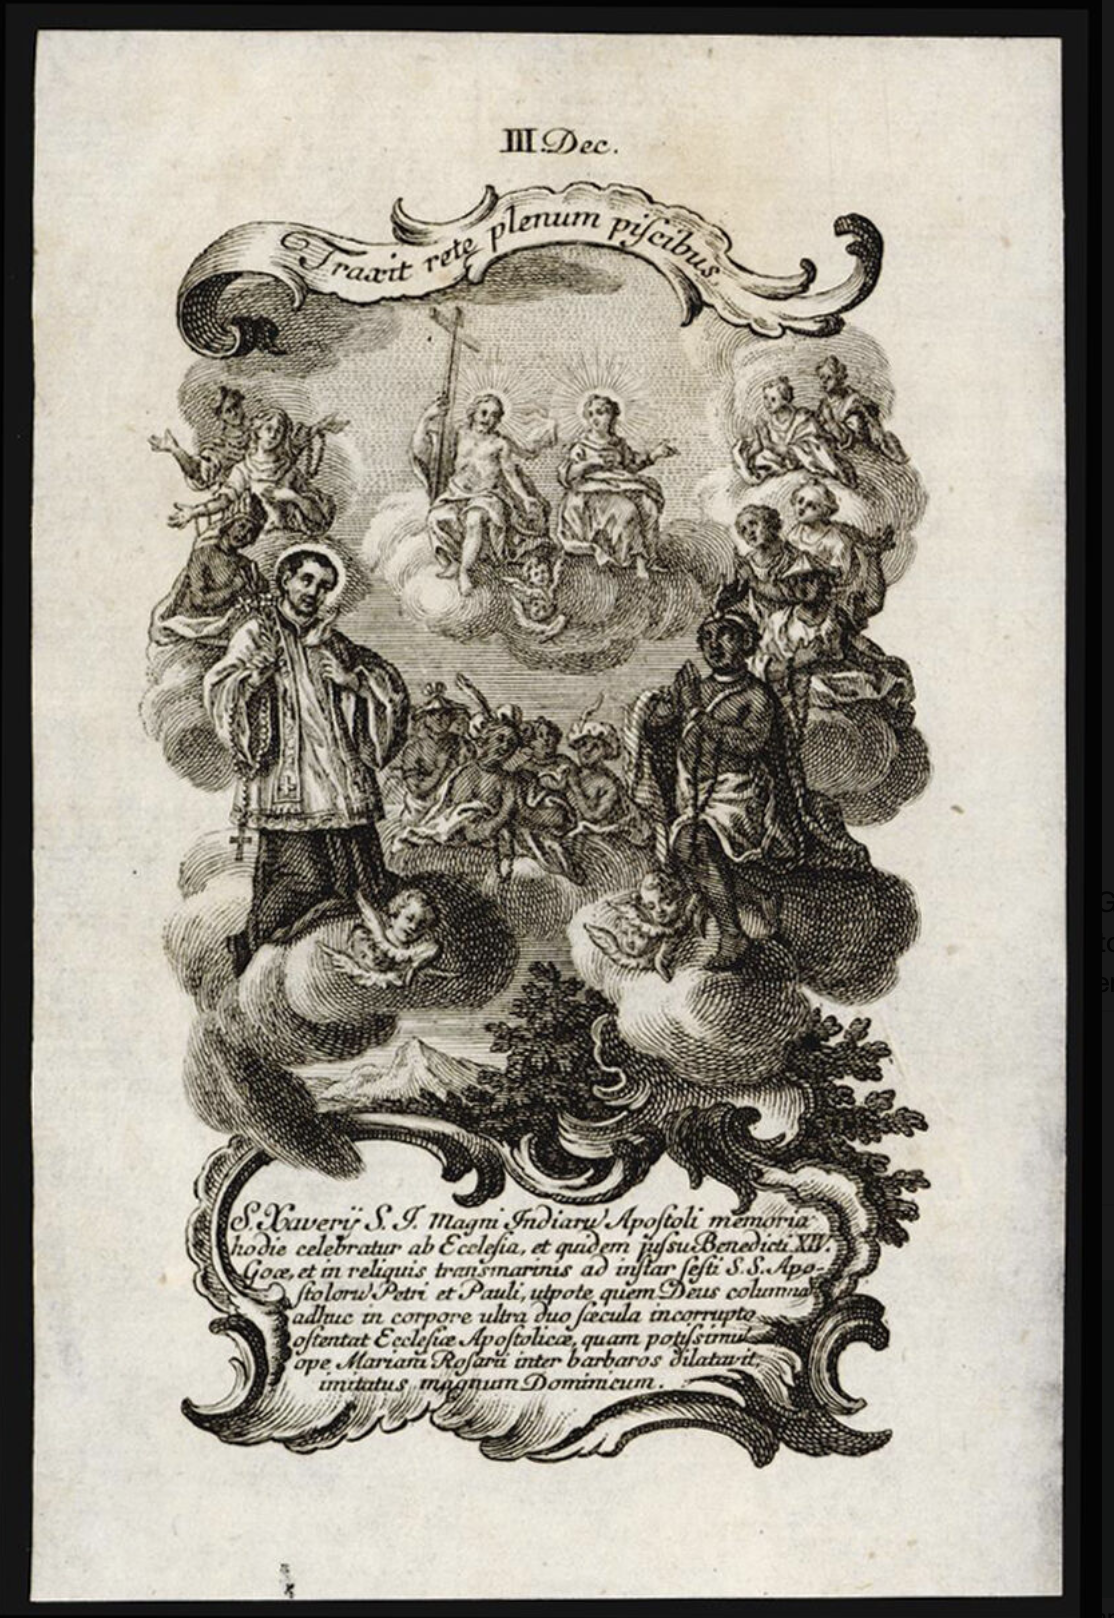 III. Dec.
Traxit rete plenum piſcibus
S. Xaverij S. J. Magni Indiarū Apoſtoli memoria
hodie celebratur ab Eccleſia, et quidem juſsu Benedicti XIV.
Goæ, et in reliquis transmarinis ad inſtar feſti S.S. Apo-
ſtolorū Petri et Pauli, utpote quem Deus columnā
adhuc in corpore ultra duo ſæcula incorrupto
oſtentat Eccleſiæ Apoſtolicæ, quam potiſsimūl
ope Mariani Roſarii inter barbaros dilatavit,
imitatus magnum Dominicum.